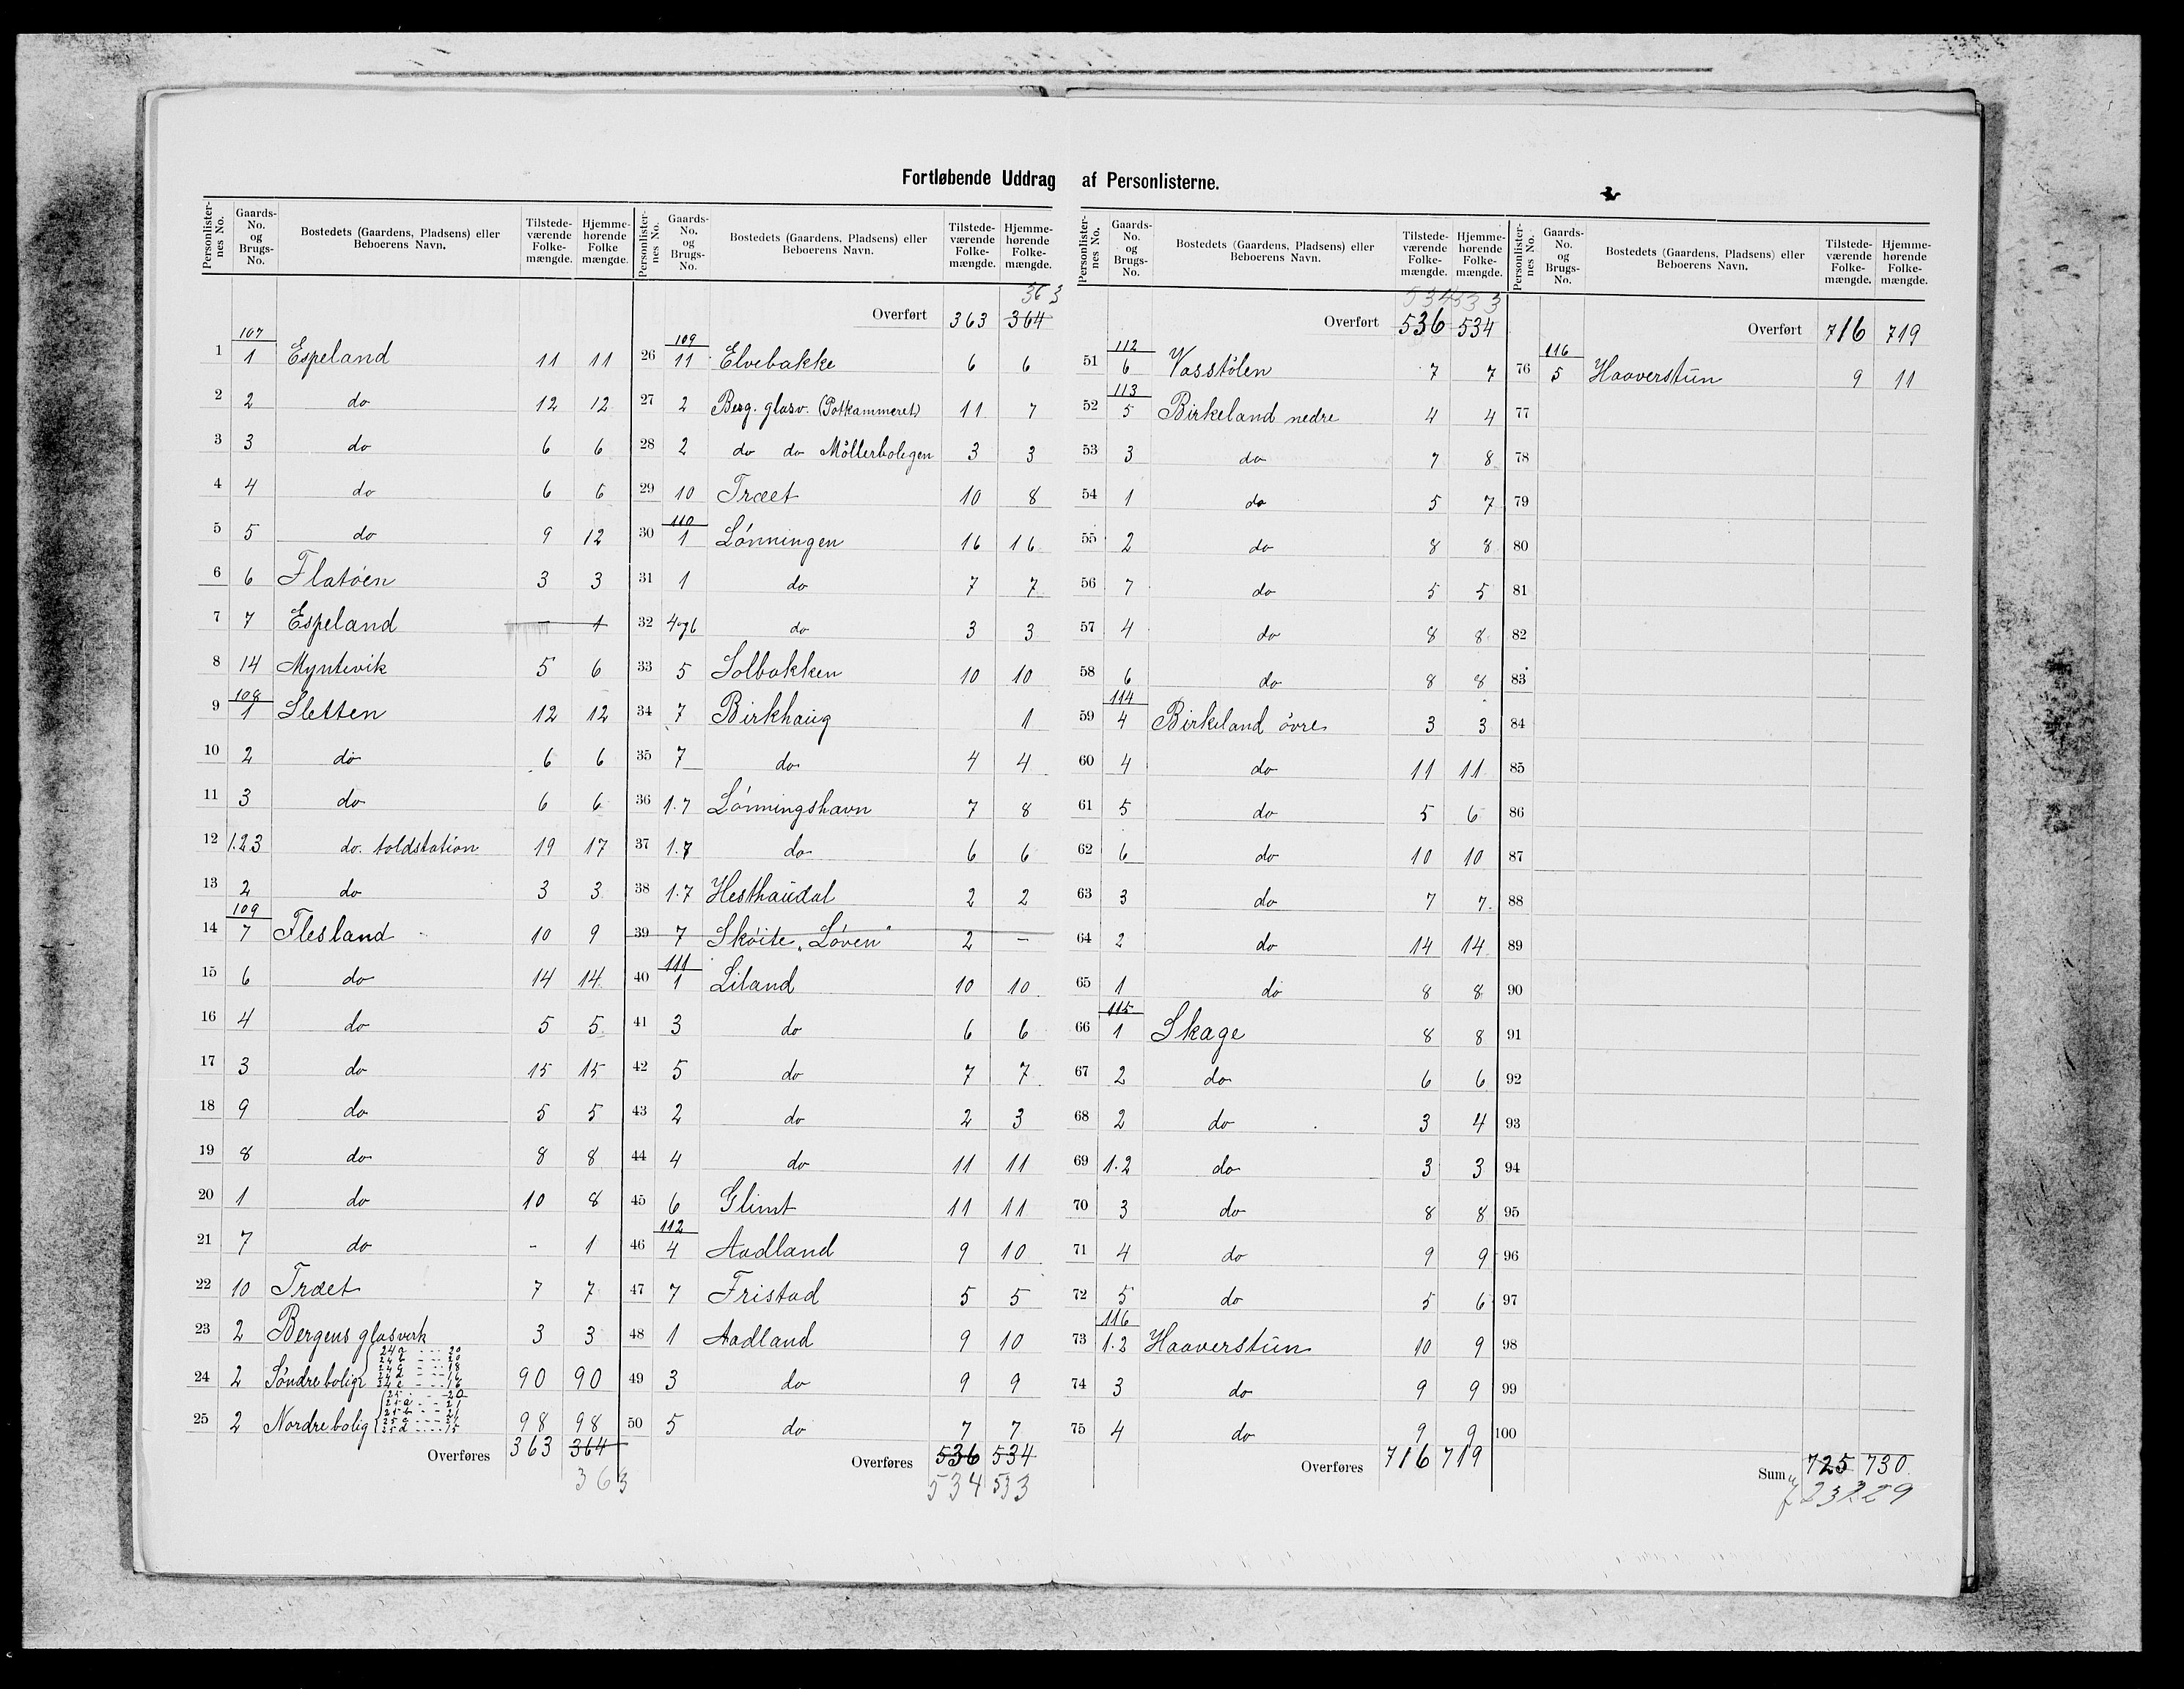 Fortløbende Uddrag af Personlisterne.
Personlister-nes No. Gaards-No. og Brugs-No. Bostedets (Gaardens, Pladsens) eller Beboerens Navn. Tilstede-værende Folke-mængde. Hjemme-hørende Folke mængde.
107
1 1 Espeland 11 11
2 2 do 12 12
3 3 do 6 6
4 4 do 6 6
5 5 do 9 12
6 6 Flatöen 3 3
7 7 Espeland - 1
8 14 Myntevik 5 6
108
9 1 Sletten 12 12
10 2 do 6 6
11 3 do 6 6
12 1.2.3 do. toldstation 19 17
13 2 do 3 3
109
14 7 Flesland 10 9
15 6 do 14 14
16 4 do 5 5
17 3 do 15 15
18 9 do 5 5
19 8 do 8 8
20 1 do 10 8
21 7 do - 1
22 10 Træet 7 7
23 2 Bergens glasverk 3 3
24 2 Söndre bolig 90 90
25 2 Nordre bolig 98 98
Overføres 363 364
363
Personlister-nes No. Gaards-No. og Brugs-No. Bostedets (Gaardens, Pladsens) eller Beboerens Navn. Tilstede-værende Folke-mængde. Hjemme-hørende Folke-mængde.
363
Overført 363 364
109
26 11 Elvebakke 6 6
27 2 Berg. glasv. (Potkammeret) 11 7
28 2 do do Möllerboligen 3 3
29 10 Træet 10 8
110
30 1 Lönningen 16 16
31 1 do 7 7
32 4og6 do 3 3
33 5 Solbakken 10 10
34 7 Birkhaug 1
35 7 do 4 4
36 1.7 Lönningshavn 7 8
37 1.7 do 6 6
38 1.7 Hesthaudal 2 2
39 7 Sköite „Löven" 2 -
111
40 1 Liland 10 10
41 3 do 6 6
42 5 do 7 7
43 2 do 2 3
44 4 do 11 11
45 6 Glimt 11 11
112
46 4 Aadland 9 10
47 7 Fristad 5 5
48 1 Aadland 9 10
49 3 do 9 9
50 5 do 7 7
Overføres 536 534
534 533
Personlister-nes No. Gaards-No. og Brugs-No. Bostedets (Gaardens, Pladsens) eller Beboerens Navn. Tilstede-værende Folke-mængde. Hjemme-hørende Folke-mængde.
534 533
Overført 536 534
112
51 6 Vasstölen 7 7
113
52 5 Birkeland nedre 4 4
53 3 do 7 8
54 1 do 5 7
55 2 do 8 8
56 7 do 5 5
57 4 do 8 8
58 6 do 8 8
114
59 4 Birkeland övre 3 3
60 4 do 11 11
61 5 do 5 6
62 6 do 10 10
63 3 do 7 7
64 2 do 14 14
65 1 do 8 8
115
66 1 Skage 8 8
67 2 do 6 6
68 2 do 3 4
69 1.2 do 3 3
70 3 do 8 8
71 4 do 9 9
72 5 do 5 6
116
73 1.2 Haaverstun 10 9
74 3 do 9 9
75 4 do 9 9
Overføres 716 719
Personlister-nes No. Gaards-No. og Brugs-No. Bostedets (Gaardens, Pladsens) eller Beboerens Navn. Tilstede-værende Folke-mængde. Hjemme-hørende Folke-mængde.
Overført 716 719
116
76 5 Haaverstun 9 11
77
78
79
80
81
82
83
84
85
86
87
88
89
90
91
92
93
94
95
96
97
98
99
100
Sum 725 730